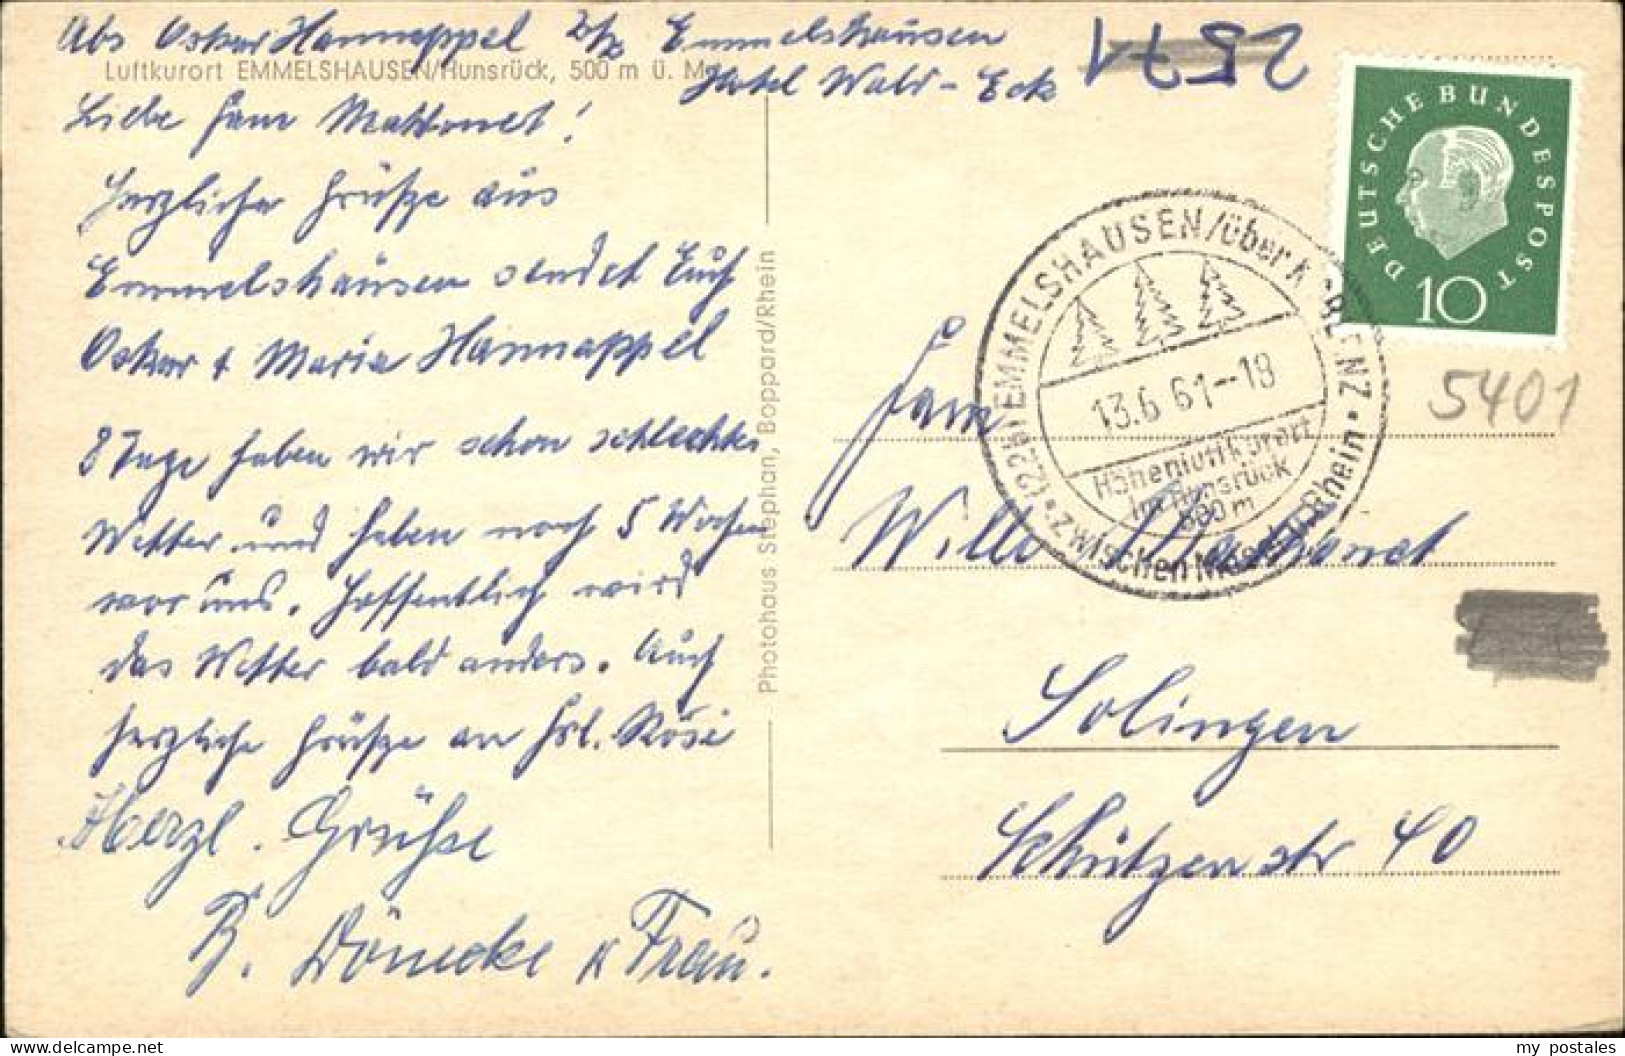 Abs Oskar Hannappel Emmelshausen
Hotel Wald-Eck
2571
Luftkurort EMMELSHAUSEN/Hunsrück, 500 m ü. M.
Liebe Fam Mattonet!
Herzliche Grüße aus
Emmelshausen sendet Euch
Oskar + Maria Hannappel
8 Tage haben wir schon schlechtes
Wetter und haben noch 5 Wochen
vor uns. Hoffentlich wird
das Wetter bald anders. Auch
herzliche Grüße an Frl. Rosi
Herzl. Grüße
B. Dönecke u Frau.
Photohaus Stephan, Boppard/Rhein
DEUTSCHE BUNDESPOST
10
(22b) EMMELSHAUSEN/über KOBLENZ
13.6 61--18
Höhenluftkurort
im Hunsrück
500 m
zwischen Mosel u. Rhein
5401
Fam
Willi Mattonet
Solingen
Schützenstr 40
my postales